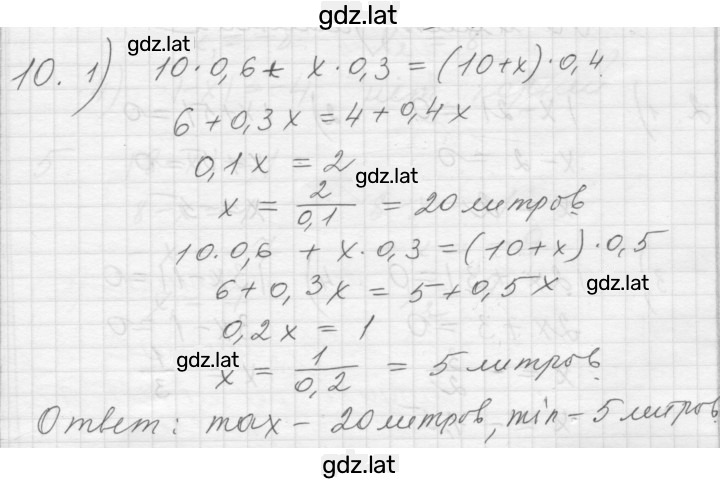 gdz.lat
gdz.lat
10. 1) 10·0,6+ x·0,3=(10+x)·0,4
6+0,3x=4+0,4x
0,1x = 2
gdz.lat
x = 2/0,1 = 20 литров
10·0,6 + x·0,3=(10+x)·0,5
6+0,3x = 5+0,5x
gdz.lat
0,2x = 1
gdz.lat
x = 1/0,2 = 5 литров
Ответ: max – 20 литров, min – 5 литров
gdz.lat